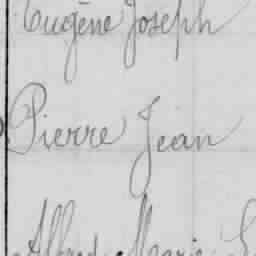 Eugène Joseph
Pierre Jean
Alfred Marie